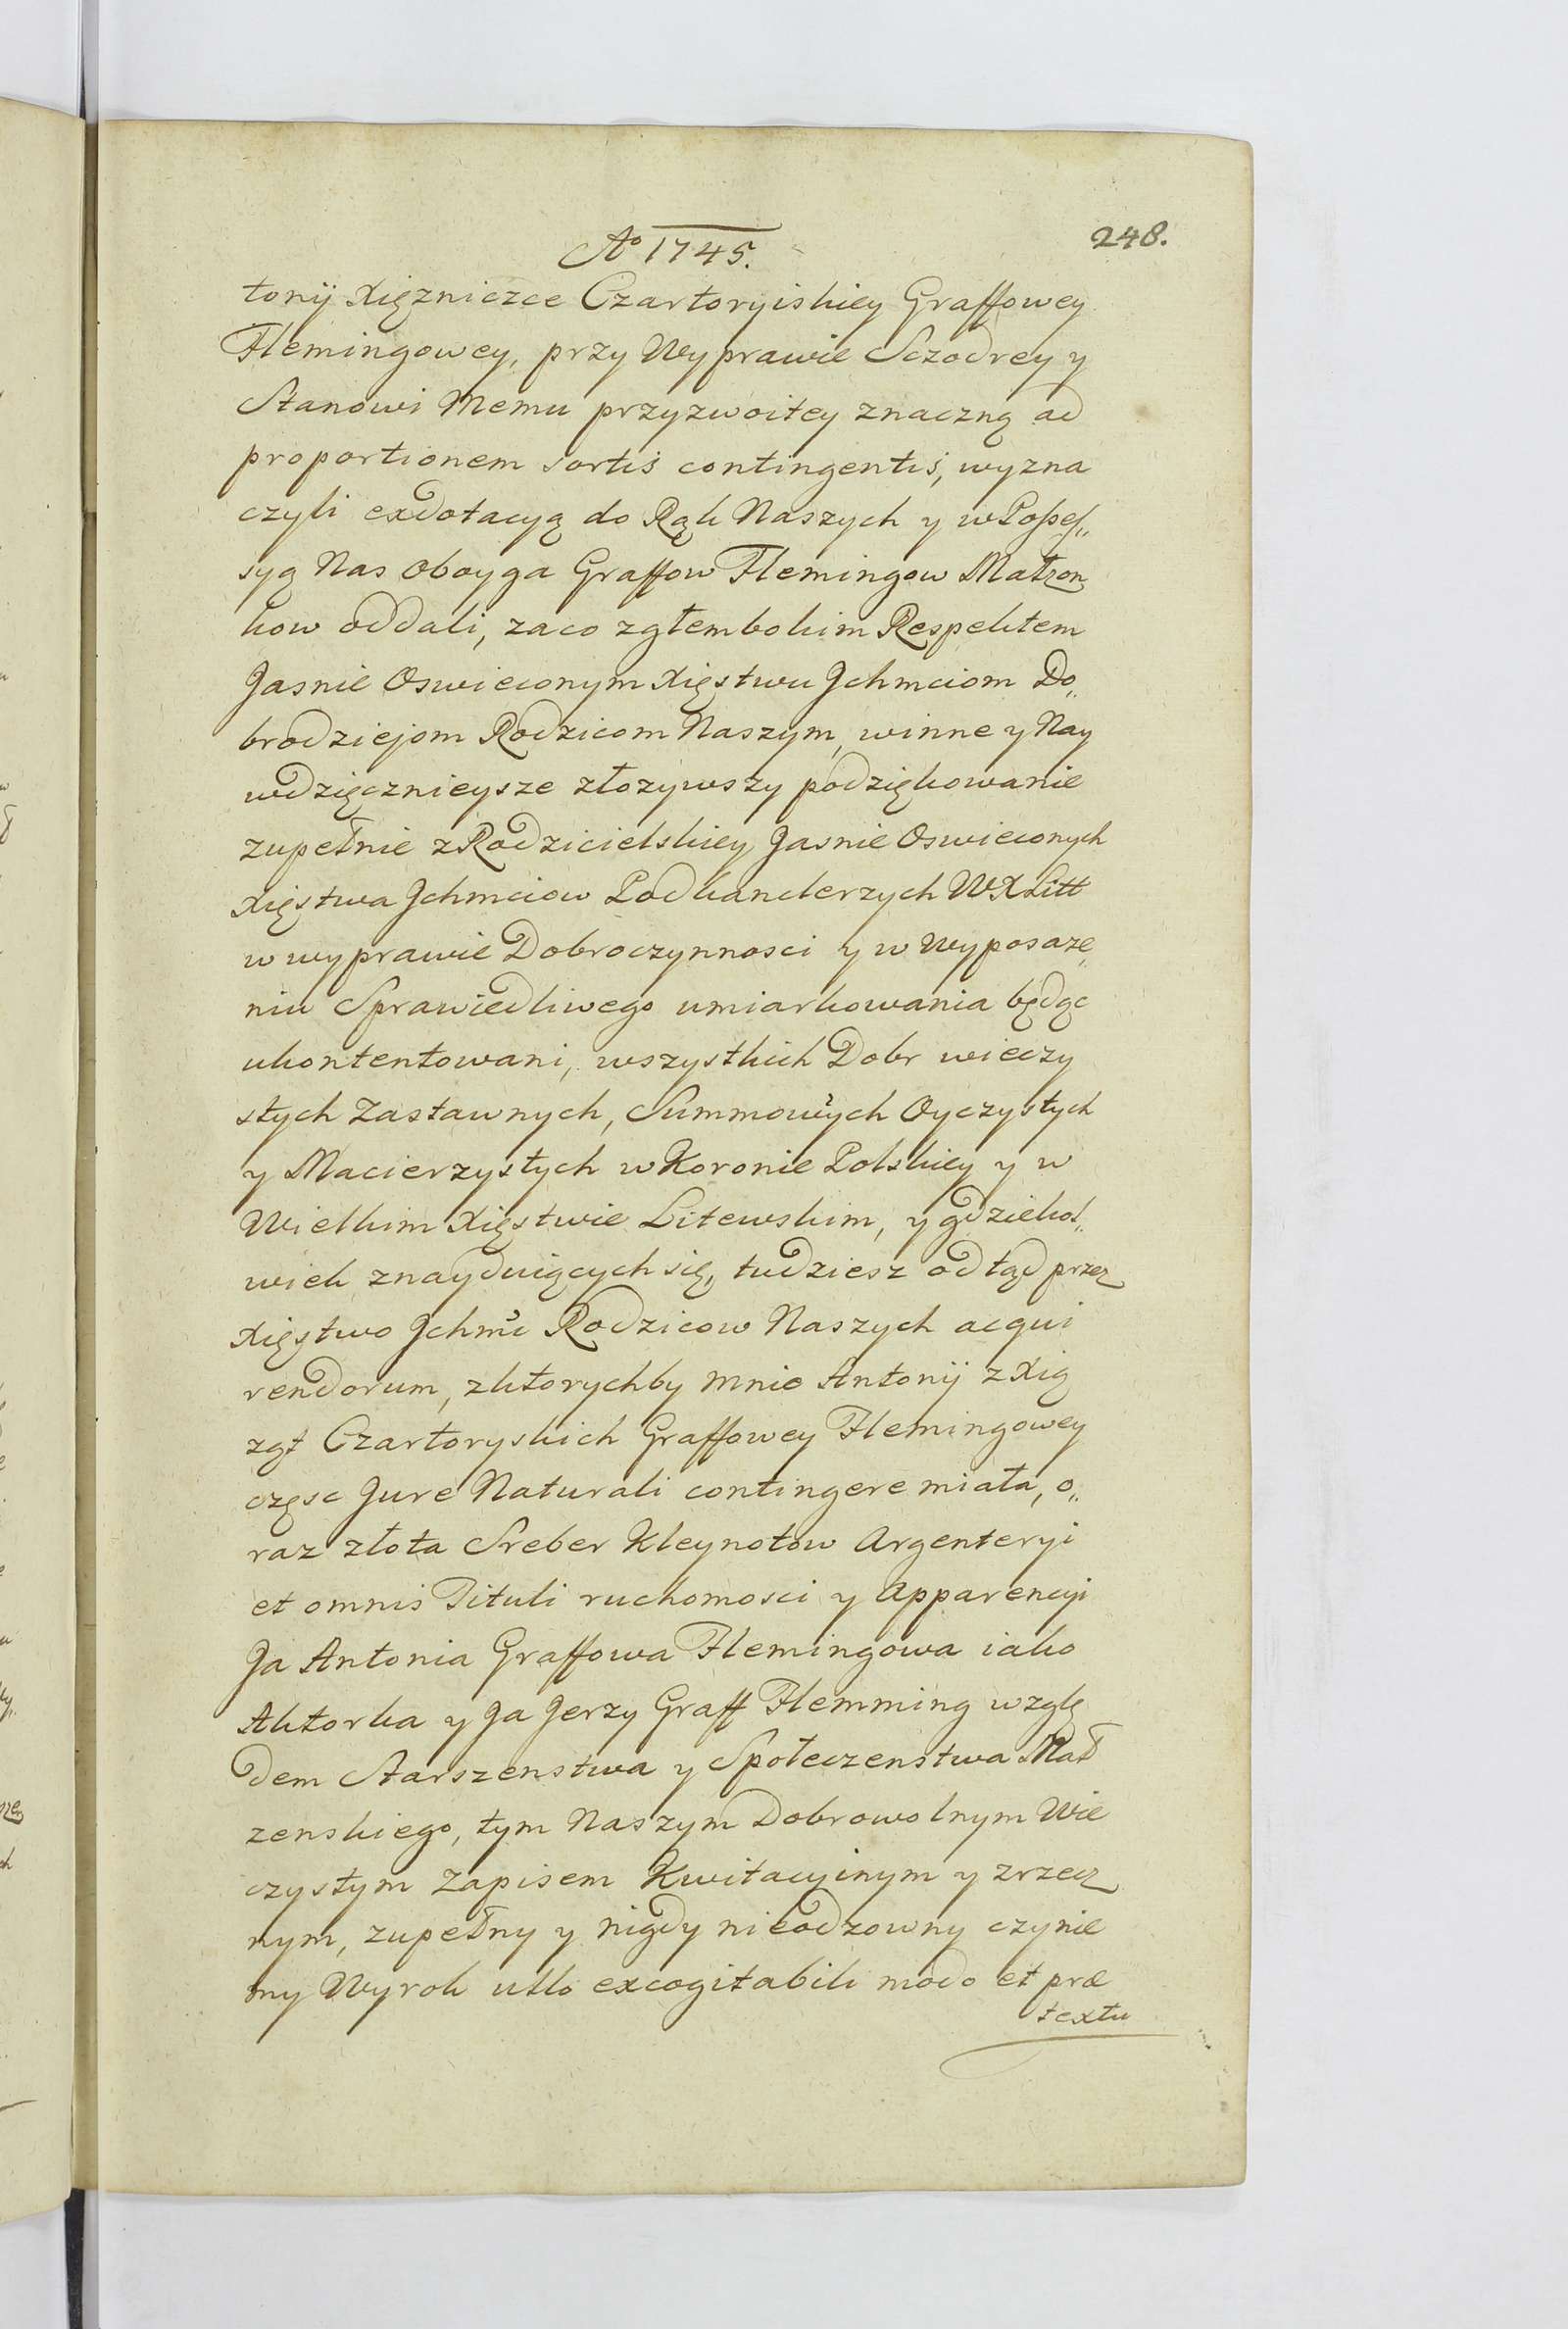 Aº 1745.
248.
tonij Xięzniczce Czartoryiskiey Graffowey
Flemingowey, przy Wyprawie Sczodrey y
Stanowi Memu przyzwoitey znaczną ad
proportionem sortis contingentis, wyzna
czyli exdotacyą do Rąk Naszych y w Possess„
syą Nas oboyga Graffow Flemingow Małzon
kow oddali, zaco zgłembokim Respektem
Jasnie Oswieconym Xięstwu Jchmciom Do„
brodziejom Rodzicom Naszym, winne y Nay
wdzięcznieysze złozywszy podziękowanie
zupełnie z Rodzicielskiey Jasnie Oswieconych
Xięstwa Jchmciow Podkanclerzych WXLitt
w wyprawie Dobroczynnosci y w Wyposaze„
niu Sprawiedliwego umiarkowania będąc
ukontentowani, wszystkich Dobr wieczy
stych Zastawnych, Summowych Oyczystych
y Macierzystych w Koronie Polskiey y w
Wielkim Xięstwie Litewskim, y gdziekol„
wiek znayduiących się, tudziesz odtąd przez
Xięstwo Jchmć Rodzicow Naszych acqui
rendorum, zktorychby mnie Antonij z Xią
ząt Czartoryskich Graffowey Flemingowey
częsc Jure Naturali contingere miała, o„
raz złota Sreber Kleynotow Argenteryi
et omnis Tituli ruchomosci y Apparencyi
Ja Antonia Graffowa Flemingowa iako
Aktorka y Ja Jerzy Graff Flemming wzglę
dem Starszenstwa y Społeczenstwa Mał
zenskiego, tym Naszym Dobrowolnym Wie
czystym Zapisem Kwitacyinym y zrzecz
nym, zupełny y nigdy nieodzowny czynie
my Wyrok ullo excogitabili modo et præ
textu